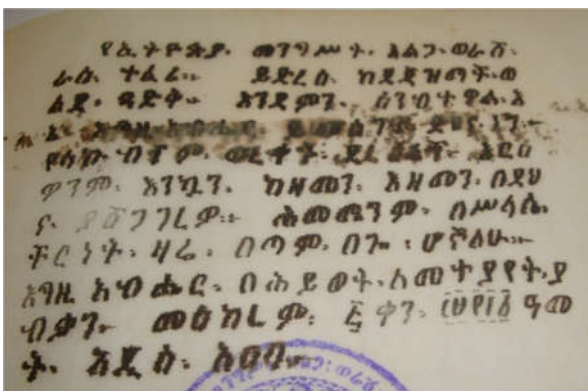 የኢትዮጵያ፡ መንግሥት፡ አልጋ፡ወራሽ፡
ራስ፡ ተፈሪ። ይድረስ፡ ከደጃዝማች፡ወ
ልደ፡ ጻድቅ። እንደምን፡ ሰንብተዋል፡እ
እግዚአብሔር፡ ይመስገን፡ ደህና፡ ነን።
የላኩ
እርስ
ዎንም፡ እንኳን፡ ከዘመን፡ እዘመን፡ በደህ
ና፡ ያሸጋገረዎ። ሕመሜንም፡ በሥላሴ፡
ቸርነት፡ ዛሬ፡ በጣም፡ በጎ፡ ሆኛለሁ።
እግዚአብሔር፡ በሕይወት፡ ለመተያየት፡ያ
ብቃን። መስከረም፡ ቀን፡ ዓመ
ት፡ አዲስ፡ አበባ።